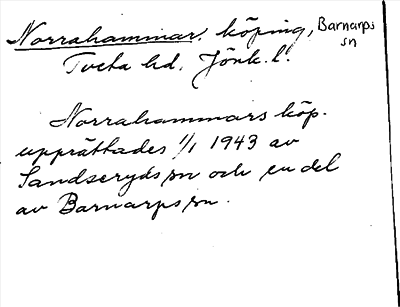 Norrahammar, köping, Barnarps sn
Tveta hd, Jönk. l.
Norrahammars köp.
upprättades 1/1 1943 av
Sandseryds sn och en del
av Barnarps sn.